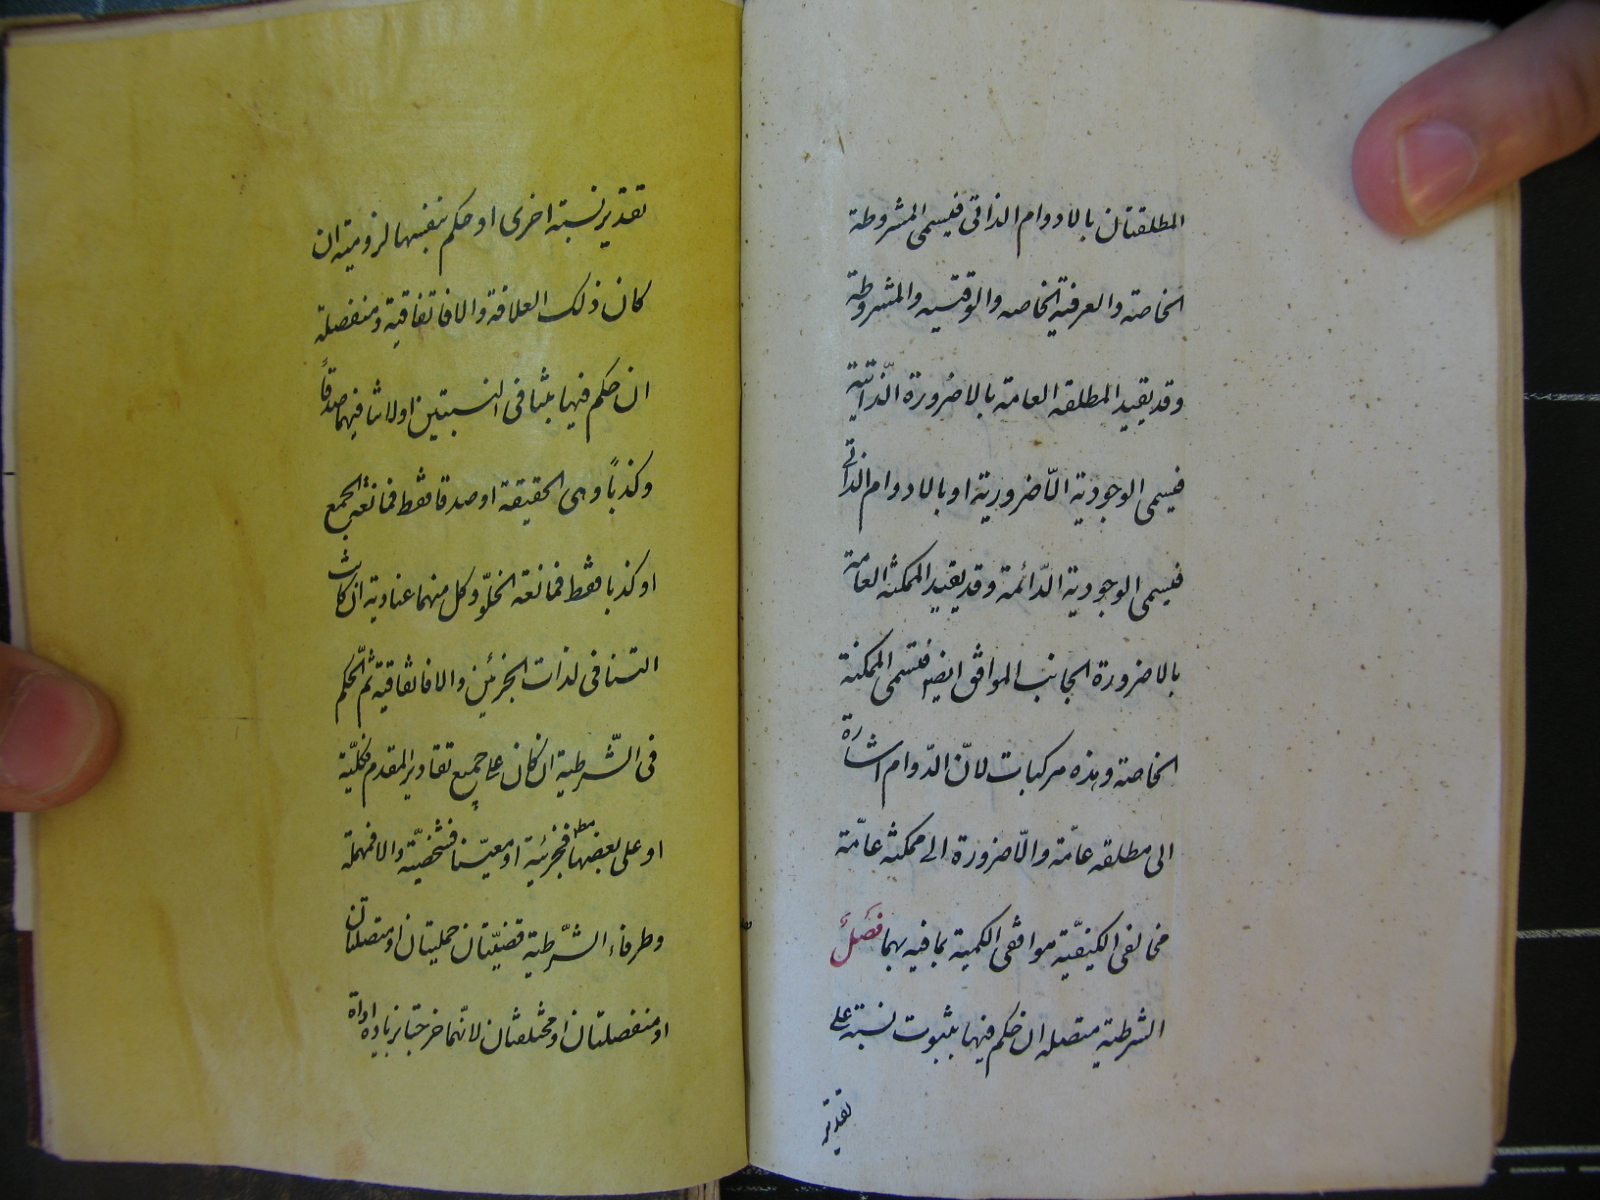 المطلقتان بالادوام الذاتى فيسمى المشروطة
الخاصة والعرفية الخاصه والوقتيه والمشروطة
وقد يقيد المطلقه العامة بالاضرورة الذّاتية
فيسمى الوجودية الّاضرورية او بالادوام الذاتى
فيسمى الوجودية الدّائمة وقد يقيد الممكنه العامة
بالاضرورة الجانب الموافق ايضا فتسمى الممكنة
الخاصة وهذه مركبات لانّ الدّوام اشارة
الى مطلقه عامّة والّاضرورة الى ممكنه عامّة
مخالفى الكيفيّة موافقى الكمية بما فيه بهما فصل
الشرطية متصله ان حكم فيها بثبوت نسبته على
تقدير
تقدير نسبته اخرى او حكم بنفيها لزومية ان
كان ذلك العلاقة والافاتفاقية ومنفصلة
ان حكم فيها بتنافى النسبتين اولاتنافيهما صدقاً
وكذباً وهى الحقيقة او صدقا فقط فمانعة الجمع
او كذبا فقط فمانعة الخلّو وكل منهما عنادية ان كانت
التنافى لذات الجزئين والافاتفاقية ثمّ الحكم
فى الشّرطية ان كان على جميع تقادير المقدم فكليّة
او على بعضها مط فجزئية او معيّنا فشخصيّة والافمهملة
وطرفاء الشّرطية قضيّتان حمليتان او متصلتان
او منفصلتان او مختلفتان لانّهما خرجتا بزيادة اداة